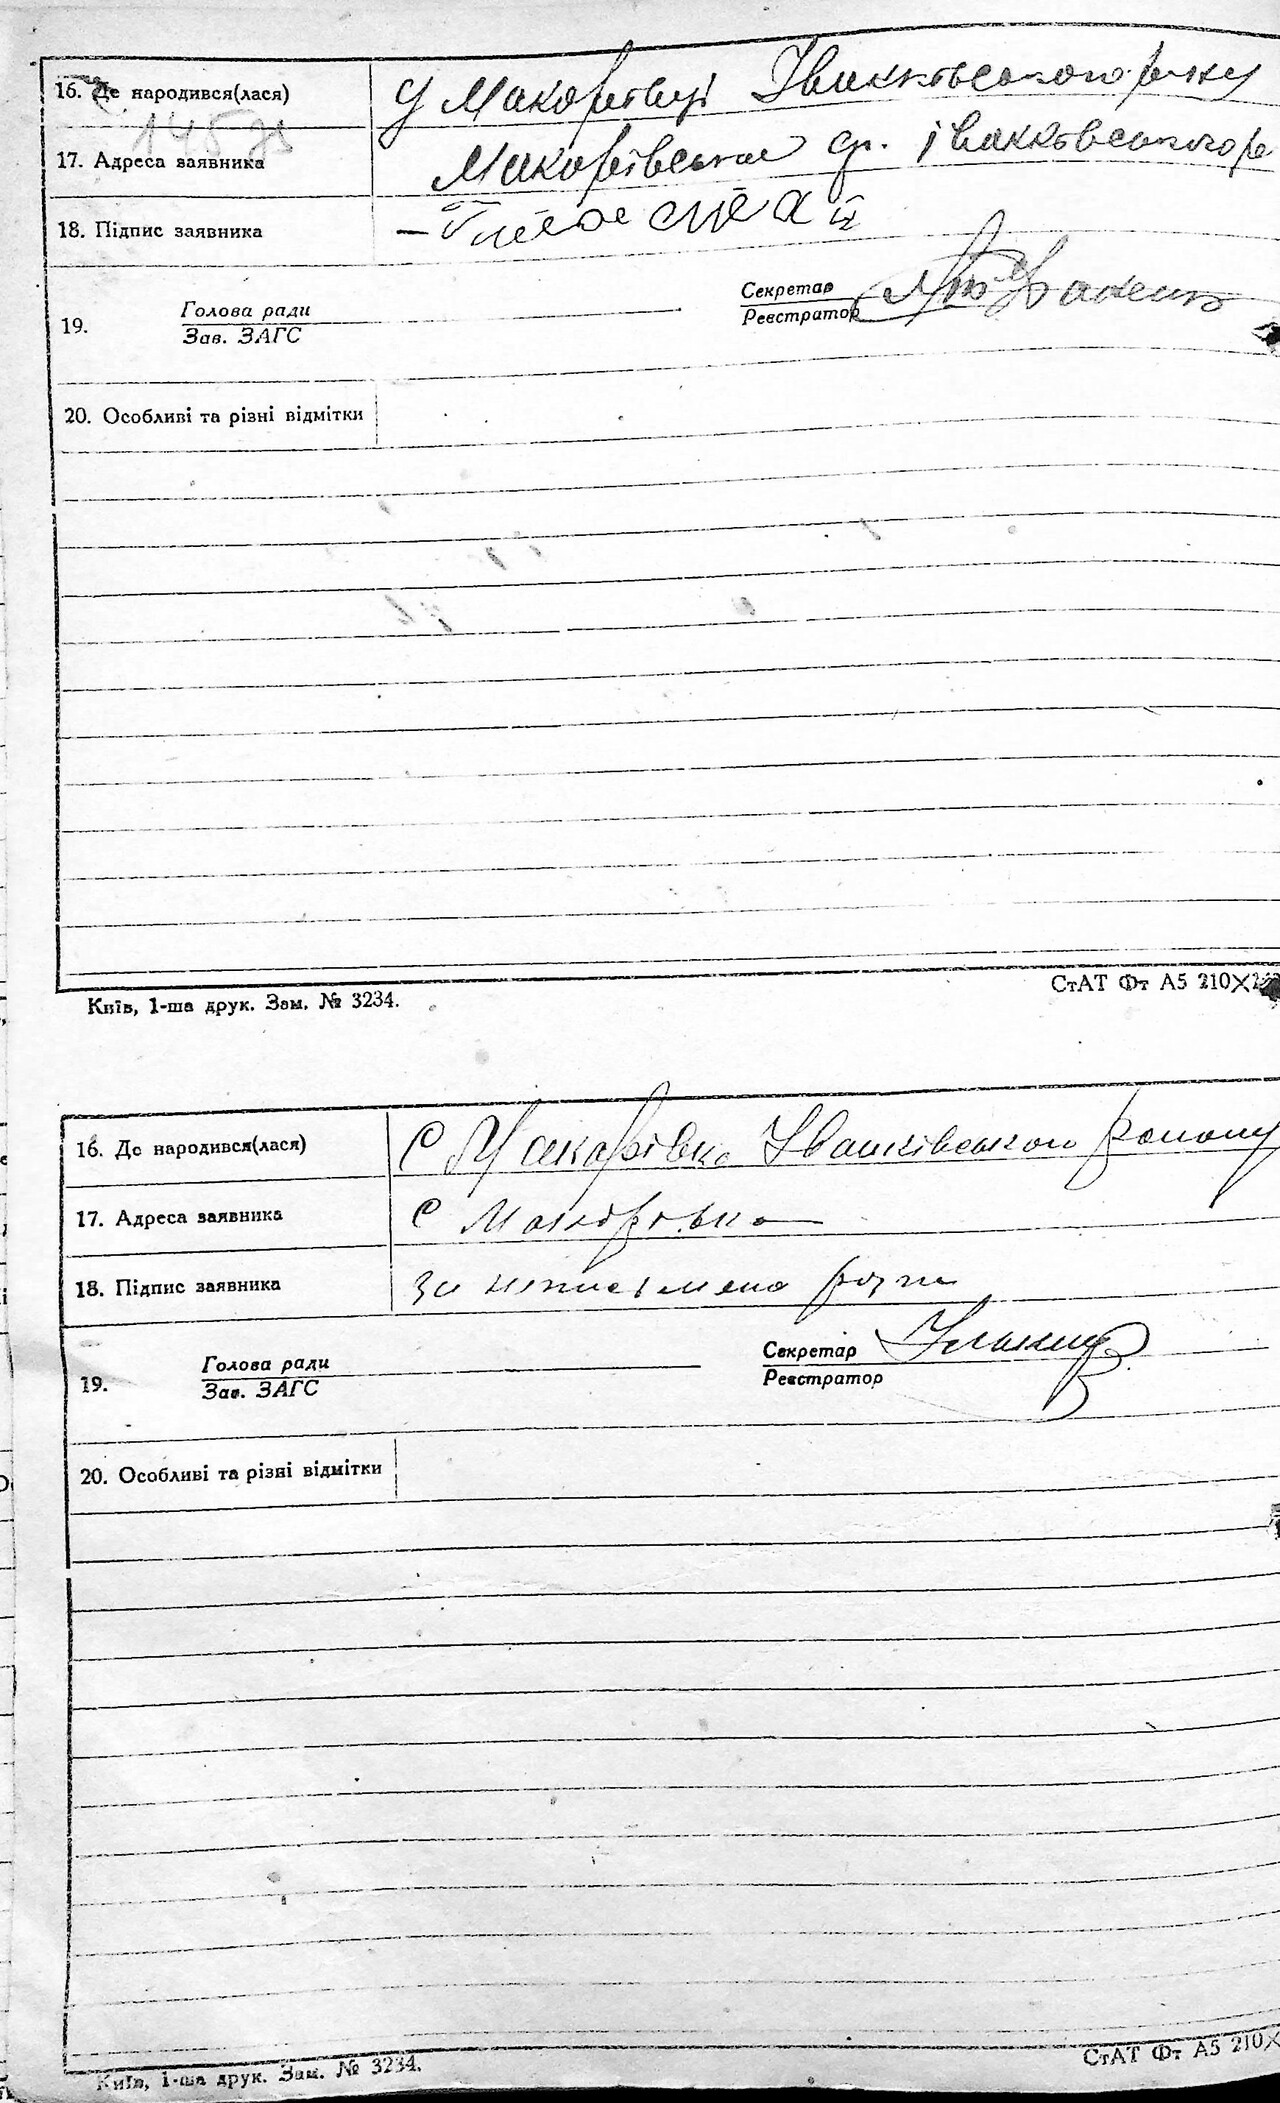 16. Де народився(лася) У Макарівці Іванківського р-ну
145
17. Адреса заявника Макарівська Іванківського р
18. Підпис заявника
Секретар
Реєстратор
19. Голова ради
Зав. ЗАГС
20. Особливі та різні відмітки
Київ, 1-ша друк. Зам. № 3234.
СтАТ Фт А5 210×
16. Де народився(лася) С Макарівка Іванківського району
17. Адреса заявника С Макарівка
18. Підпис заявника за неписьмено
Секретар
Реєстратор
19. Голова ради
Зав. ЗАГС
20. Особливі та різні відмітки
Київ, 1-ша друк. Зам. № 3234.
СтАТ Фт А5 210×